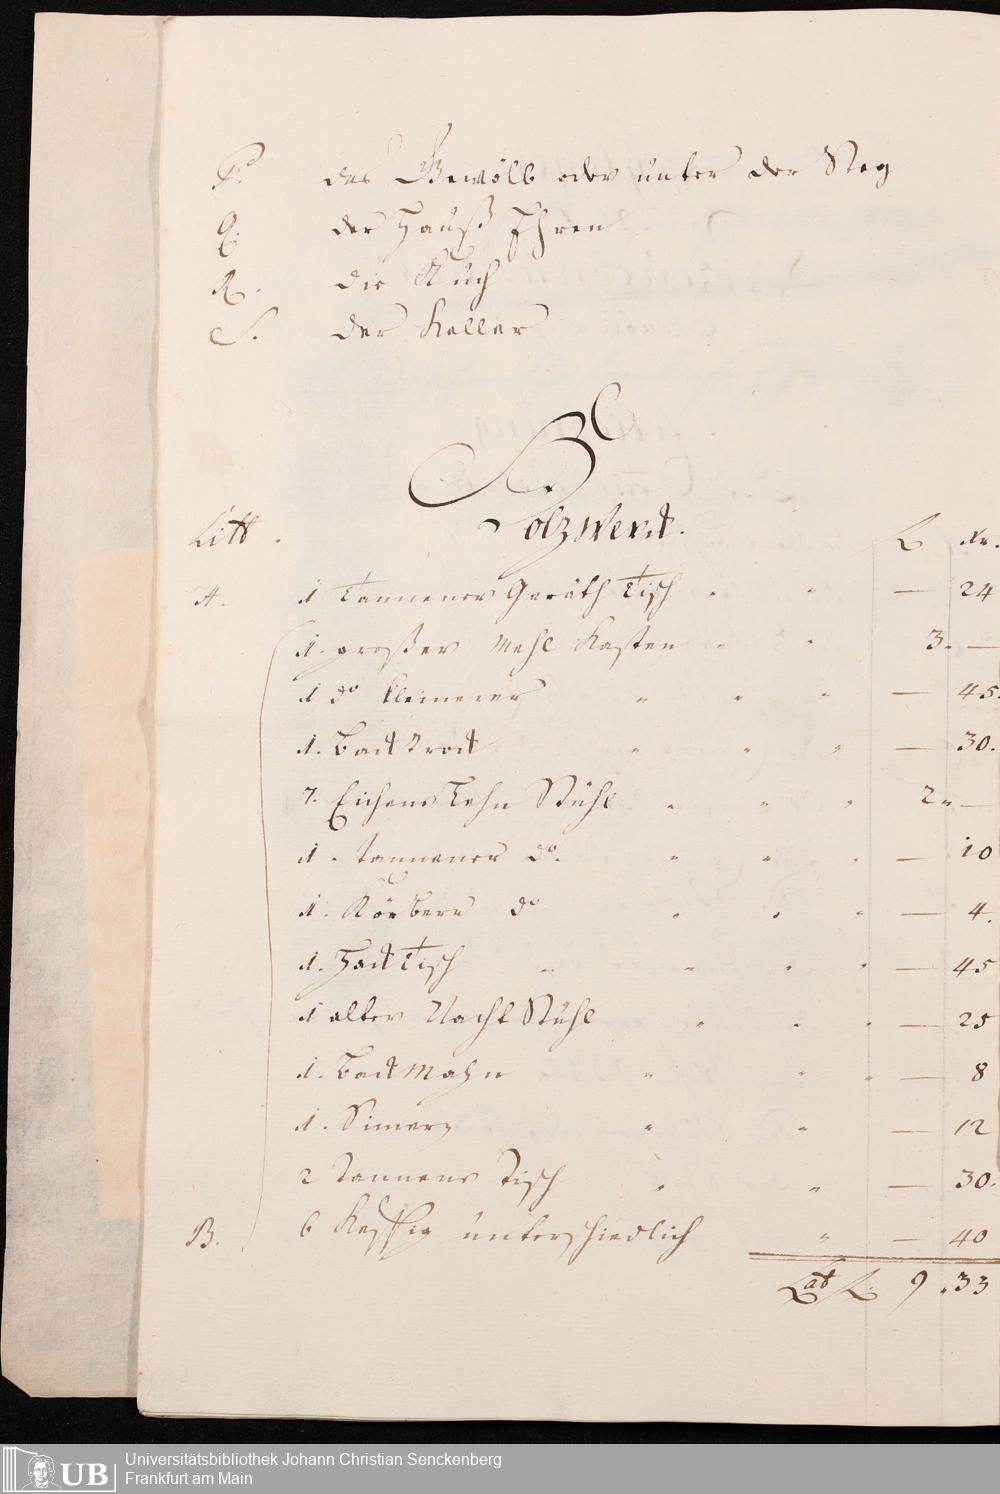 P. das Gewölb oder unter der Steg
Q. der Hauß Ehren
R. die Kuch
S. der Keller
Holzwerck.
Litt. fl. Kr.
A. 1 Tannener Geräth Tisch — 24
1. großer Mehl Kasten 3. —
1 do kleinerer — 45.
1. Backtrock — 30.
7. Eichene Lehn Stühl 2 „ —
1. Tannener do. — 10
1. Körbern do — 4.
1. Hack Tisch — 45
1 alter Nacht Stuhl — 25
1. Back Mahn — 8
1. Simerz — 12
2 Tannene Tisch — 30.
B. 6 Keffig unterschiedlich „ — 40
Lat fl. 9. 33
Universitätsbibliothek Johann Christian Senckenberg
Frankfurt am Main
UB